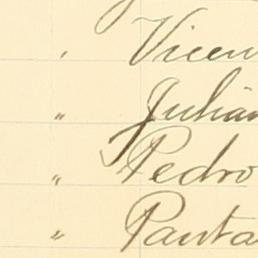 , Vicen
" Julián
" Pedro
" Panta